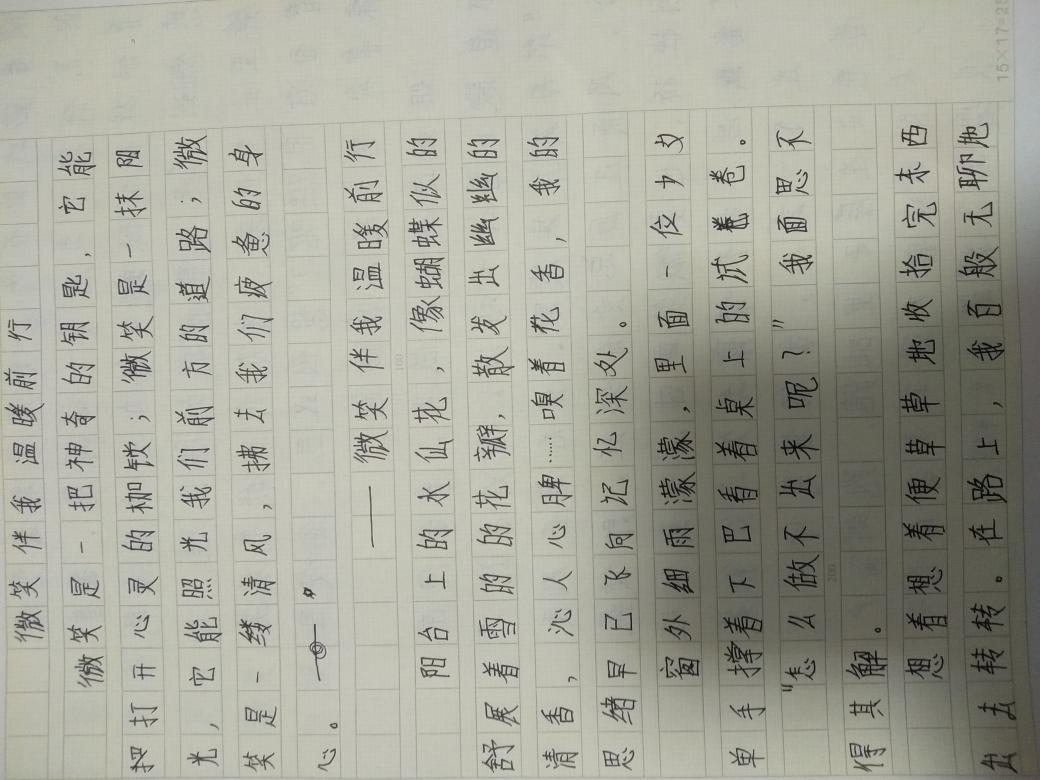 微笑伴我温暖前行
微笑是一把神奇的钥匙，它能
把打开心灵的枷锁；微笑是一抹阳
光，它能照光我们前方的道路；微
笑是一缕清风，拂去我们疲惫的身
心。
——微笑伴我温暖前行
阳台上的水仙花，像蝴蝶似的
舒展着雪的的花瓣，散发出幽幽的
清香，沁人心脾……嗅着花香，我的
思绪早已飞向记忆深处。
窗外细雨濛濛，里面一位少女
单手撑着下巴看着桌上的试卷。
“怎么做不出来呢？”我面思不
得其解。
想着想着便草草地收拾完东西
出去转转。在路上，我百般无聊地
15×17=25
100
200